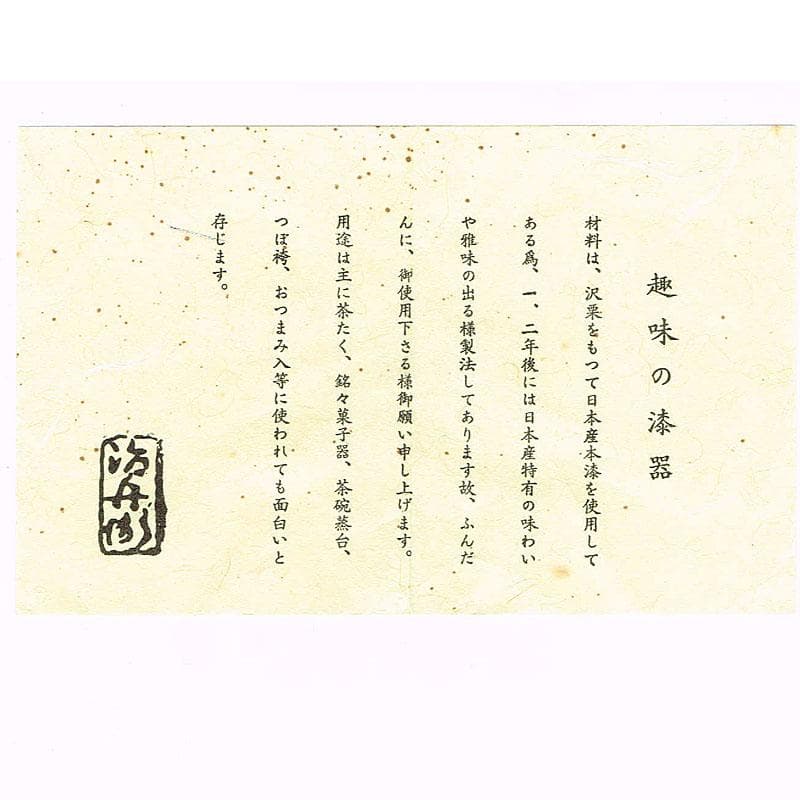 趣味の漆器
材料は、沢栗をもつて日本産本漆を使用して
ある爲、一、二年後には日本産特有の味わい
や雅味の出る様製法してあります故、ふんだ
んに、御使用下さる様御願い申し上げます。
用途は主に茶たく、銘々菓子器、茶碗蒸台、
つぼ袴、おつまみ入等に使われても面白いと
存じます。